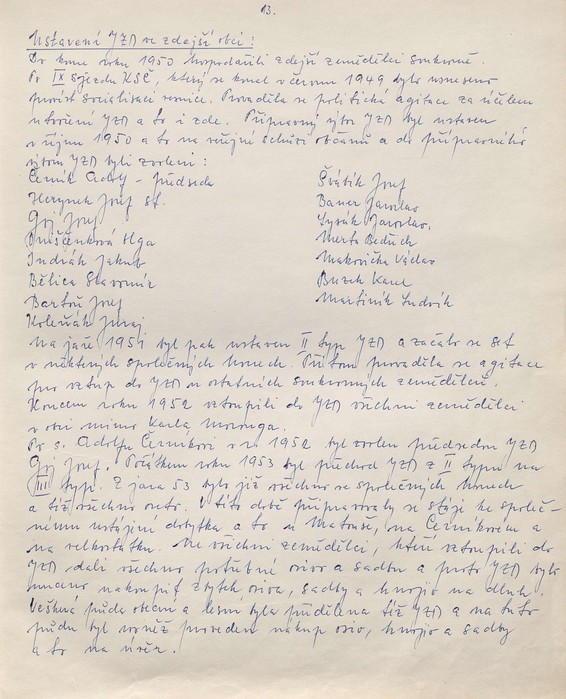 13.
Ustavení JZD ve zdejší obci!
Do konce roku 1950 hospodařili zdejší zemědělci soukromě.
Po IX sjezdu KSČ, který se konal v červnu 1949 bylo usneseno
provést socialisaci vesnice. Prováděla se politická agitace za účelem
utvoření JZD a to i zde. Přípravný výbor JZD byl ustaven
v říjnu 1950 a to na veřejné schůzi občanů a do přípravného
výboru JZD byli zvoleni:
Černík Adolf - předseda
Herynek Josef st.
Goj Josef
Olga
Indrák Jakub
Bělica Slavomír
Bartoň Josef
Koleňák Juraj
Švábík Josef
Bauer Jaroslav
Lysák Jaroslav.
Merta Bedřich
Makovička Václav
Buzek Karel
Martiník Ludvík
Na jaře 1951 byl pak ustaven II typ JZD a začalo se set
v některých společných honech. Při tom prováděla se agitace
pro vstup do JZD u ostatních soukromých zemědělců.
Koncem roku 1952 vstoupili do JZD všichni zemědělci
v obci mimo Karla
Po s. Adolfu Černíkovi v r. 1952 byl zvolen předsedou JZD
Goj Josef. Počátkem roku 1953 byl přechod JZD z II typu na
III typ. Z jara 53 bylo již všechno ve společných honech
a též všechno oseto. V této době připravovaly se stáje ke společ-
nému ustájení dobytka a to u Matouše, na Černíkovém a
na velkostatku. Ne všichni zemědělci, kteří vstoupili do
JZD dali všechno potřebné osivo a sadbu a proto JZD bylo
nuceno nakoupit zbytek osiva, sadby a hnojiv na dluh.
Veškerá půda obecní a lesní byla přidělena též JZD a na tuto
půdu byl rovněž proveden nákup osiv, hnojiv a sadby
a to na úvěr.